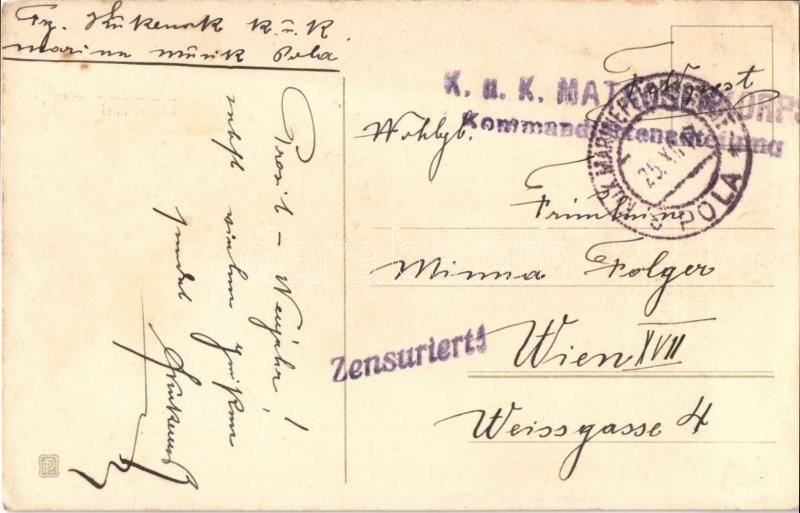 Frz. Stukenak k.u.k.
marine musik Pola
Feldpost
K. u. K. MATROSENKORPS
Kommandantenabteilung
K.u.K. MARINEFELDPOSTAMT
25.X
POLA
Wohlgb.
Fräuleine
Minna Folger
Wien XVII
Weissgasse 4
Zensuriert!
Prosit – Neujahr!
nebst vielen Grüßen
sendet
darabanth